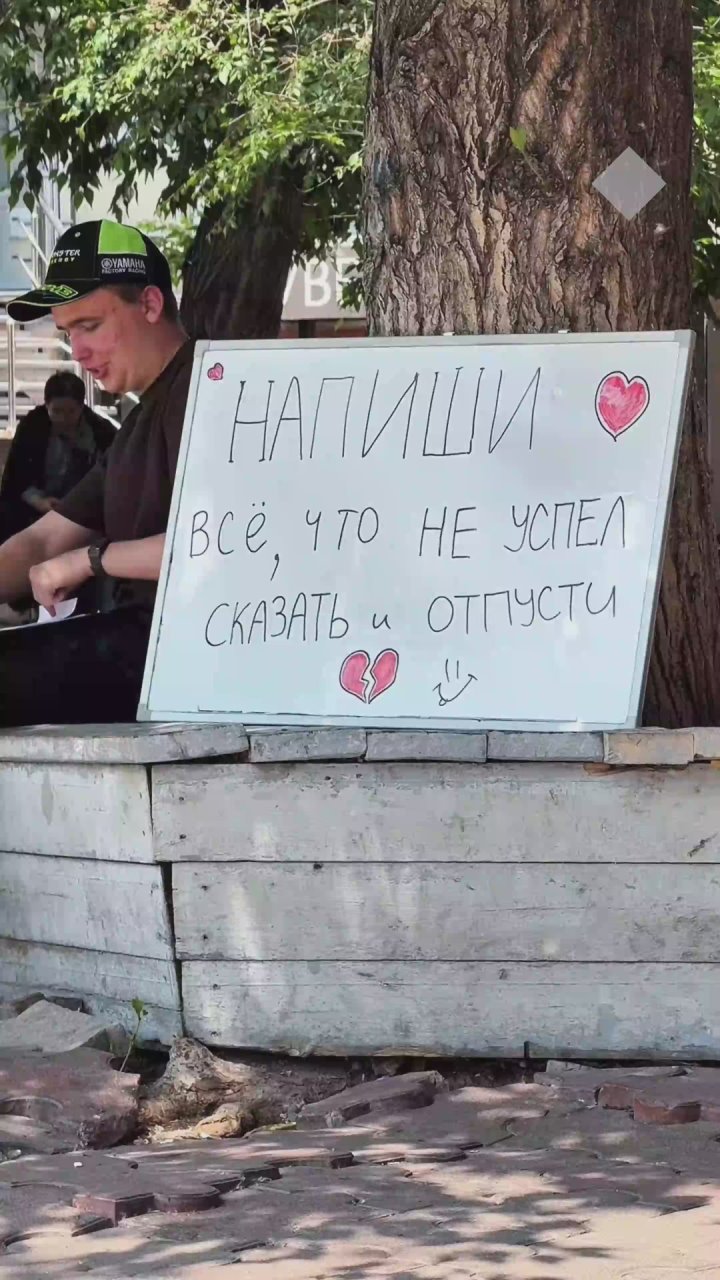 MONSTER
ENERGY
YAMAHA
FACTORY RACING
НАПИШИ
ВСЁ, ЧТО НЕ УСПЕЛ
СКАЗАТЬ и ОТПУСТИ